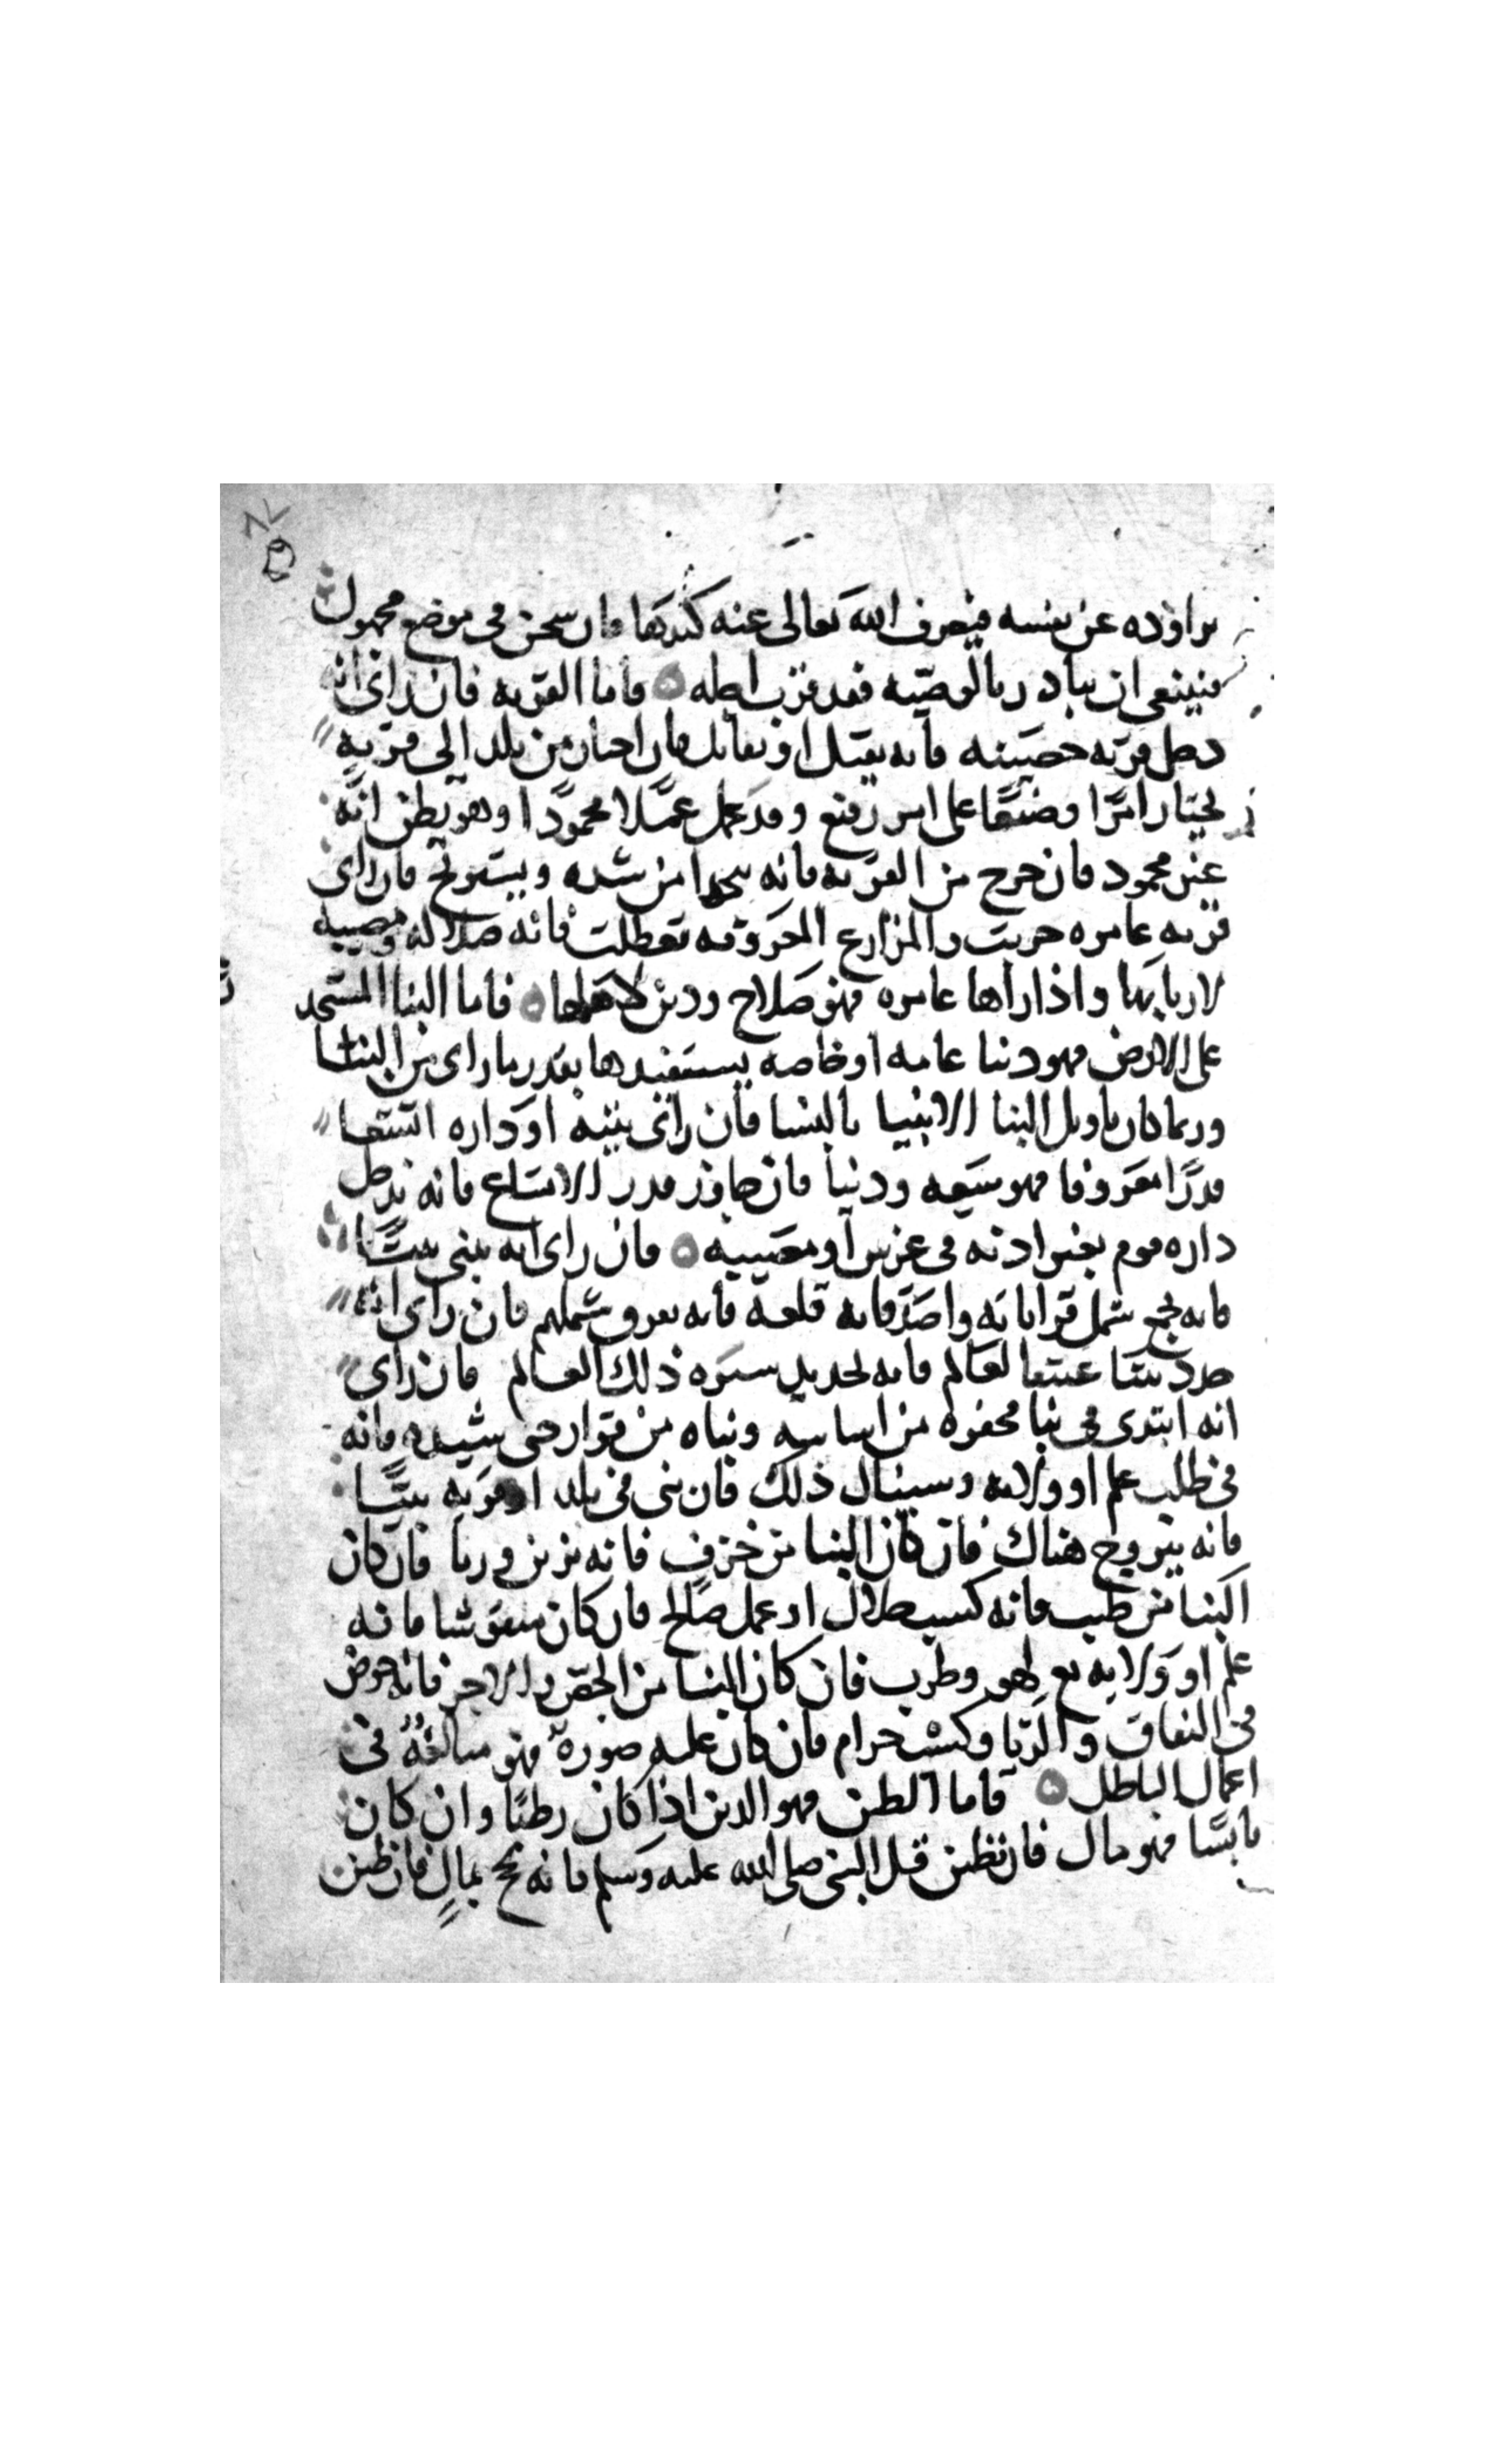 تراوده عن نفسه فيصرف الله تعالى عنه كيدها فان سجن في موضع مجهول
فينبغي ان يبادر بالوصيه فقد قرب اجله فاما القريه فان راى انه
دخل قريه حصينه فانه يقتل او يقاتل فان اجتاز من بلد الى قريه
يختار امرا وضيعا على امر رفيع وقد عمل عملا محمودا وهو يظن انه
غير محمود فان خرج من القريه فانه ينجوا من شده ويستريح فان راى
قريه عامره خربت والمزارع المعروفه تعطلت فانه ضلاله ومصيبه
لاربابها واذا راها عامره فهو صلاح ودين لاهلها فاما البنا المستجد
على الارض فهو دنيا عامه او خاصه يستفيدها بقدر ما راى من البنا
وربما كان تاويل البنا الابنيا بالنسا فان راى بيته او داره اتسعا
قدرا معروفا فهو سعه ودنيا فان جاوز قدر الاتساع فانه يدخل
داره قوم بغير اذنه في عرس او مصيبه فان راى انه يبني بيتا
فانه يجمع شمل قراباته واصدقايه قلعه فانه يعرف شملهم فان راى انه
جدد بيتا عتيقا لعالم فانه تجديد سيره ذلك العالم فان راى
انه ابتدى في بنا محفوره من اساسه وبناه من قراره حتى شيده فانه
في طلب علم او ولايه وسينال ذلك فان بنى في بلد او قريه بيتا
فانه يتزوج هناك فان كان البنا من خزف فانه تزين وريا فان كان
البنا من طين فانه كسب حلال او عمل صالح فان كان منقوشا فانه
علم او ولايه مع لهو وطرب فان كان البنا من الجص والاجر فانه خوض
في النفاق والريا وكسب حرام فان كان عليه صوره فهو مبالغه في
اعمال الباطل فاما الطين فهو الدين اذا كان رطبا وان كان
يابسا فهو مال فان تطين قبل النبي صلى الله عليه وسلم فانه يحج بمال فان طين